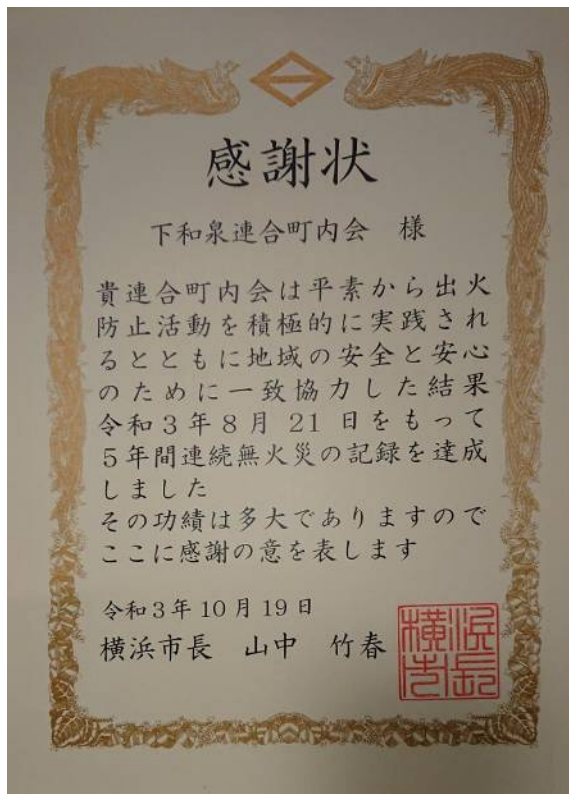 感謝状
下和泉連合町内会 様
貴連合町内会は平素から出火
防止活動を積極的に実践され
るとともに地域の安全と安心
のために一致協力した結果
令和3年8月21日をもって
5年間連続無火災の記録を達成
しました
その功績は多大でありますので
ここに感謝の意を表します
令和3年10月19日
横浜市長 山中 竹春
横浜市長